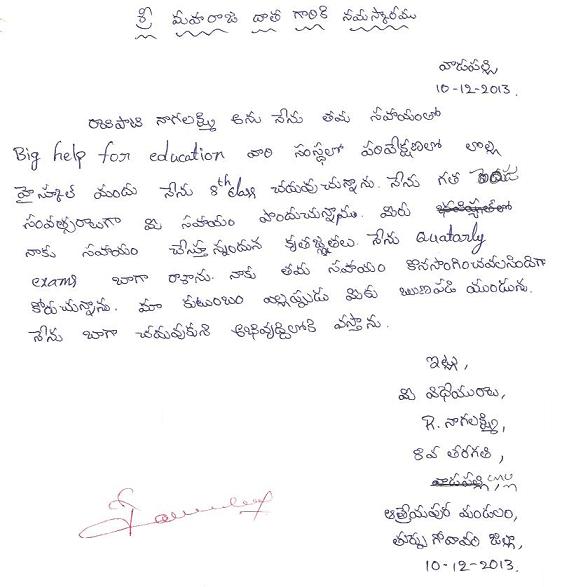 శ్రీ మహారాజ దాత గారికి నమస్కారము
వాడపల్లి
10-12-2013.
నాగలక్ష్మి అను నేను తమ సహాయంతో
Big help for education వారి సంస్థలో పర్యవేక్షణలో లొల్ల
హైస్కూల్ యందు నేను 8th class చదువుచున్నాను. నేను గత
సంవత్సరాలుగా మి సహాయం పొందుచున్నాము. మిరు
నాకు సహాయం చేస్తున్నందున కృతజ్ఞతలు. నేను Quatarly
exams బాగా రాశాను. నాకు తమ సహాయం కొనసాగించవలసిందిగా
కోరుచున్నాను. మా కుటుంబం ఎల్లప్పుడు మికు ఋణపడి యుండును.
నేను బాగా చదువుకుని అభివృద్ధిలోకి వస్తాను.
ఇట్లు,
మి విధేయురాలు,
R. నాగలక్ష్మి,
8వ తరగతి,
వాడపల్లి
ఆత్రేయపురం మండలం,
తూర్పు గోదావరి జిల్లా,
10-12-2013.